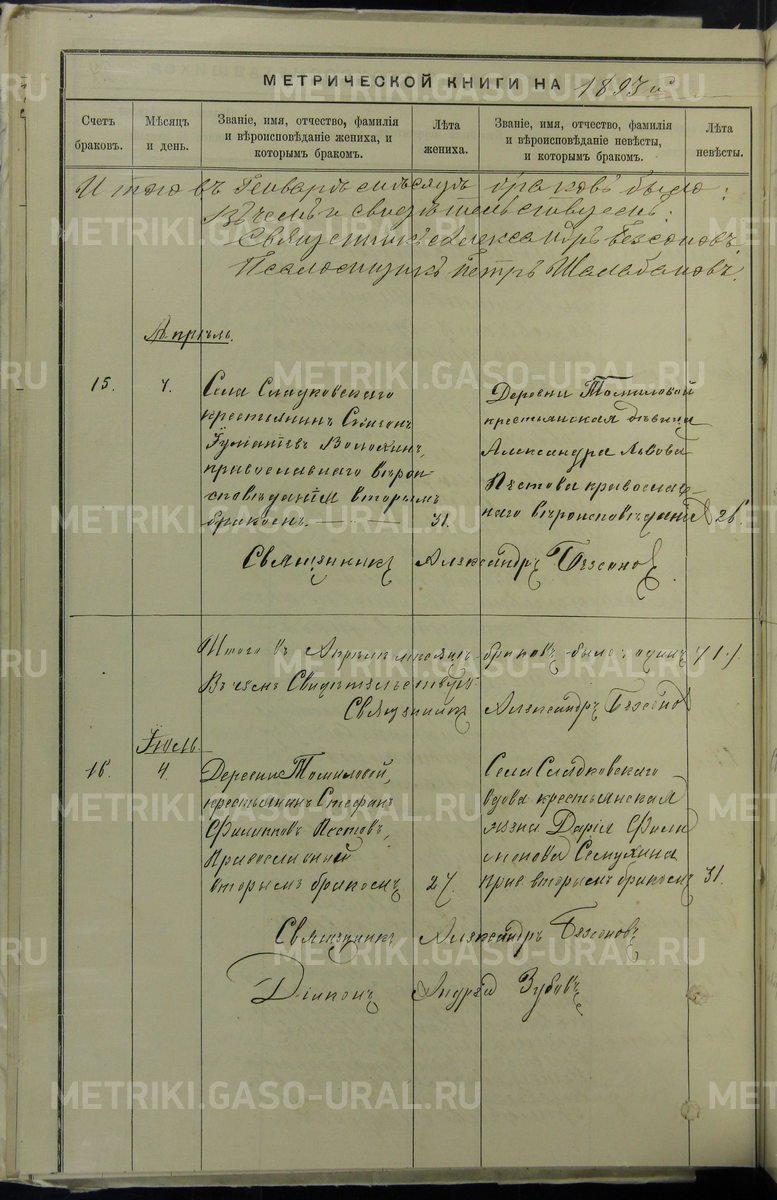 МЕТРИЧЕСКОЙ КНИГИ НА 1893 г.
Счетъ браковъ.
Мѣсяцъ и день.
Званіе, имя, отчество, фамилія и вѣроисповѣданіе жениха, и которымъ бракомъ.
Лѣта жениха.
Званіе, имя, отчество, фамилія и вѣроисповѣданіе невѣсты, и которымъ бракомъ.
Лѣта невѣсты.
Итого въ Генварѣ мѣсяцѣ браковъ было:
Въ чемъ и свидѣтельствуемъ:
Священникъ Александръ Безсоновъ
Псаломщикъ Петръ Шалабановъ.
Апрѣль.
15.
4.
Села Сладковскаго
крестьянинъ
Волохинъ,
православнаго вѣрои
сповѣданія вторымъ
бракомъ.
31.
Деревни Томиловой
крестьянская дѣвица
Александра Львова
Пестова православ
наго вѣроисповѣданія
26
Священникъ Александръ Безсонов
Итого въ Апрѣлѣ мѣсяцѣ браковъ было: одинъ /1./
Въ чемъ Свидѣтельствуемъ
Священникъ Александръ Безсонов
Іюль
16.
4.
Деревни Томиловой,
крестьянинъ Стефанъ
Филипповъ Пестовъ,
Православный
вторымъ бракомъ
27.
Села Сладковскаго
вдова крестьянская
жена Дарія Фили
монова Семухина
прав. вторымъ бракомъ
31.
Священникъ Александръ Безсоновъ
Діаконъ Андрей Зубовъ
METRIKI.GASO-URAL.RU